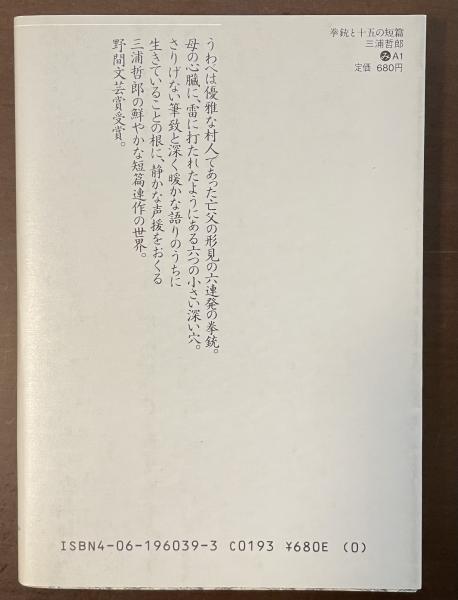 拳銃と十五の短篇
三浦哲郎
み A1
定価 680円
うわべは優雅な村人であった亡父の形見の六連発の拳銃。
母の心臓に、雷に打たれたようにある六つの小さい深い穴。
さりげない筆致と深く暖かな語りのうちに
生きていることの根に、静かな声援をおくる
三浦哲郎の鮮やかな短篇連作の世界。
野間文芸賞受賞。
ISBN4-06-196039-3 C0193 ¥680E (0)